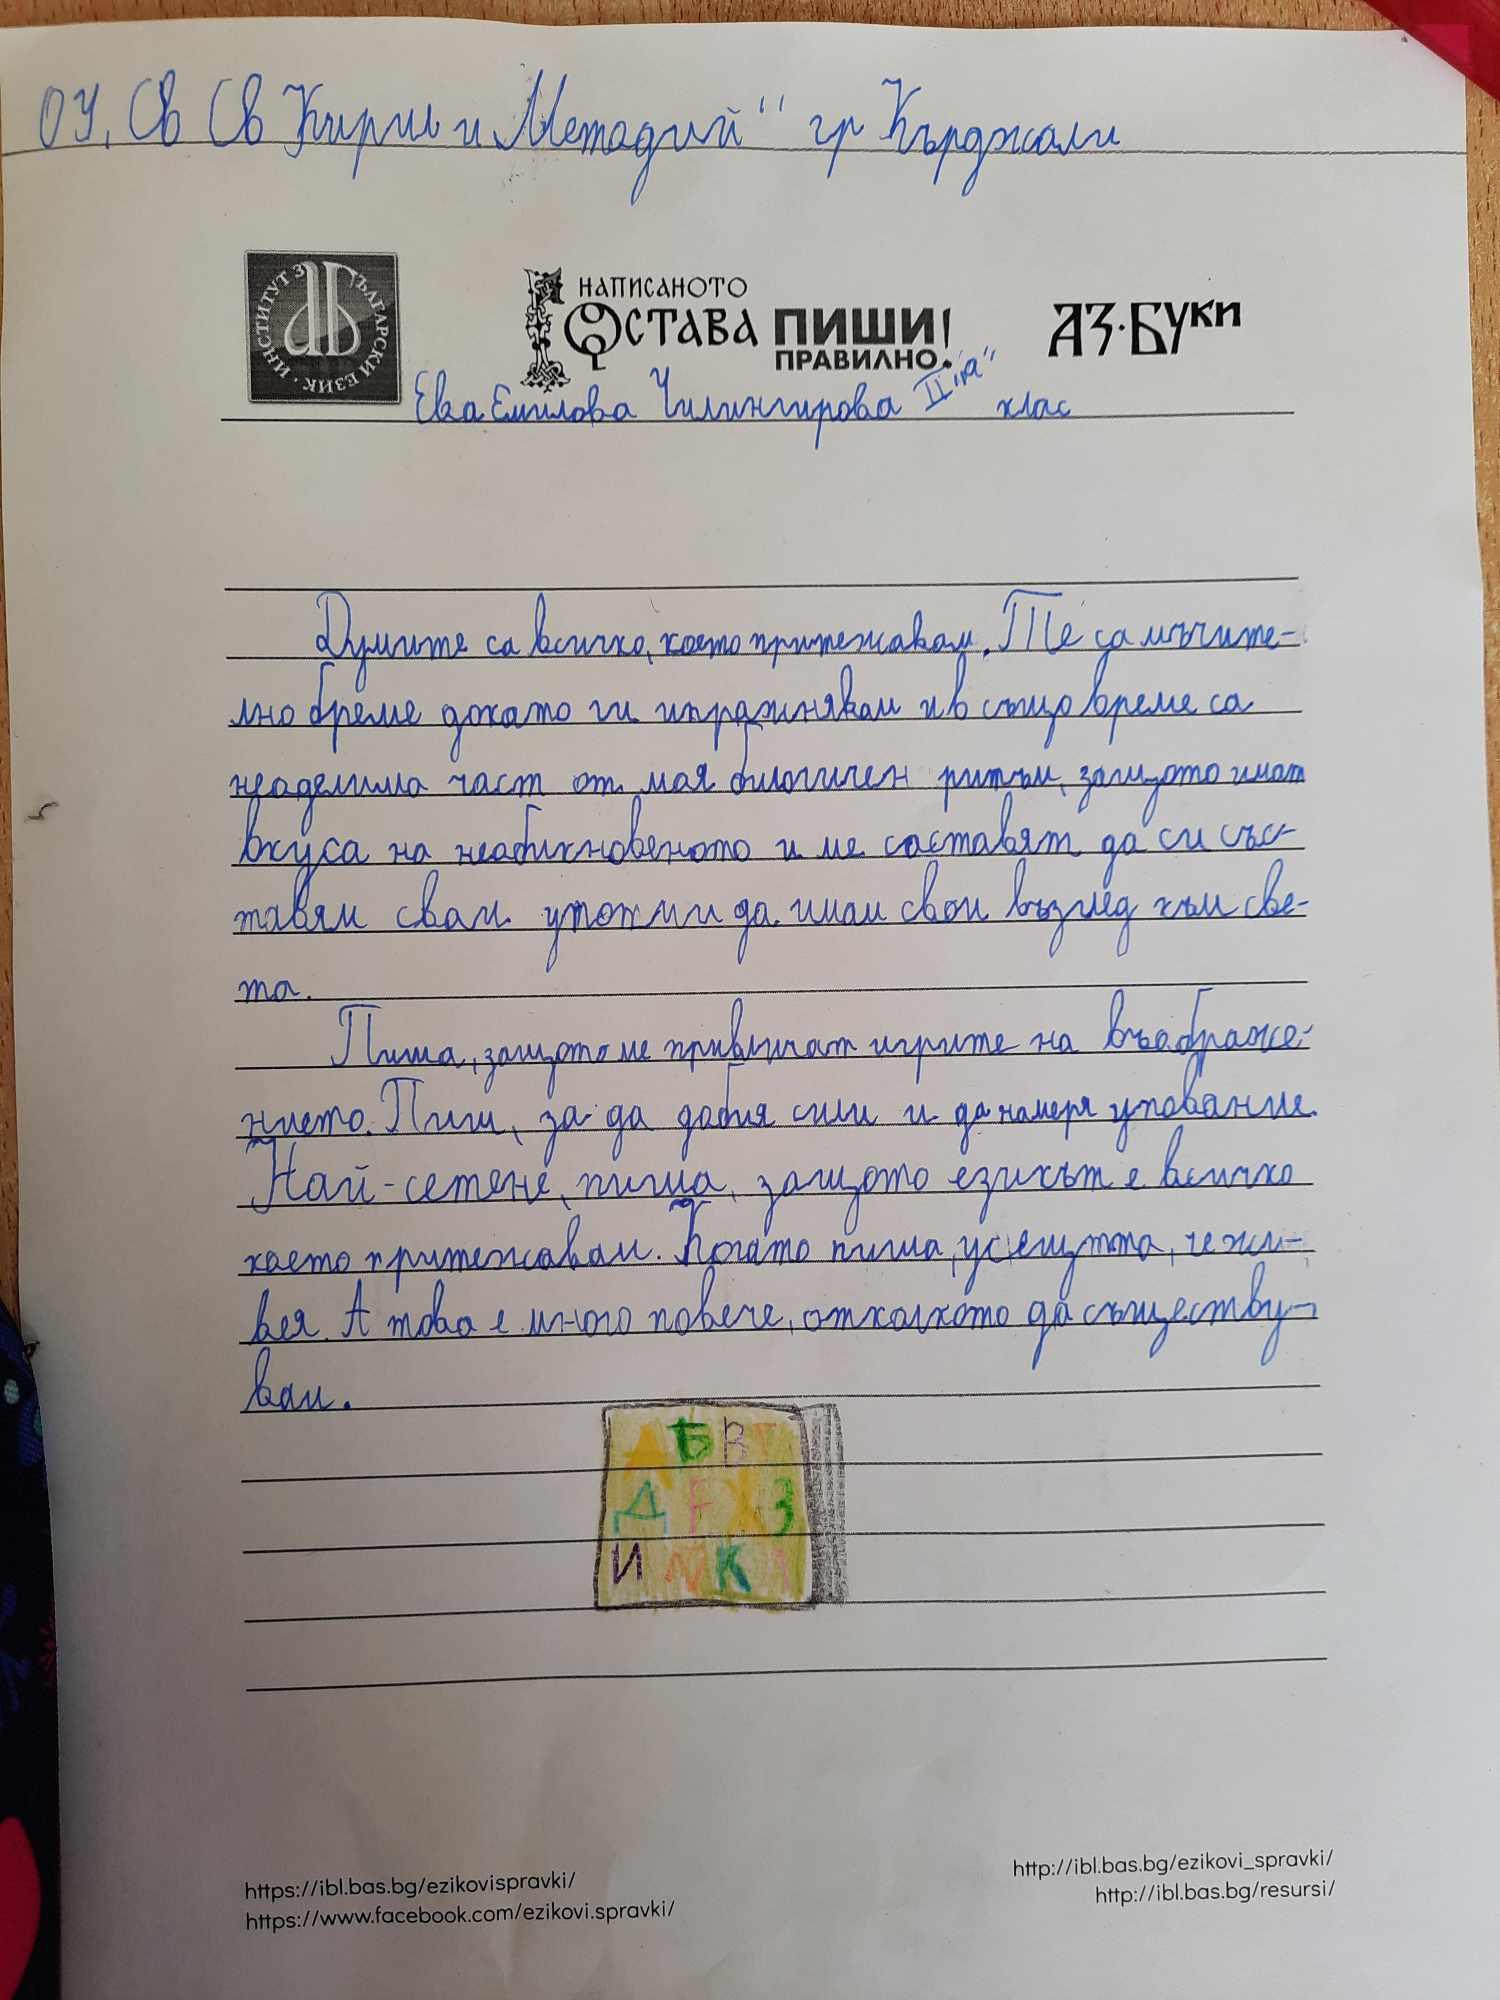 ОУ „Св Св Кирил и Методий“ гр Кърджали
ИНСТИТУТ ЗА БЪЛГАРСКИ ЕЗИК
НАПИСАНОТО
ОСТАВА ПИШИ!
ПРАВИЛНО.
АЗ·БУКИ
Ева Емилова Чилингирова II „а“ клас
Думите са всичко, което притежавам. Те са мъчите-
лно бреме докато ги изпразнявам и в също време са
неаделима част от мая билогичен ритъм, защото имат
вкуса на необикновеното и ме саставят да си със-
тавям свам утопии и да имам свои възглед към све-
та.
Пиша, защото ме привличат игрите на въображе-
нието. Пиш, за да добия сили и да намеря упование.
Най-сетене, пиша, защото езикът е всичко
което притежавам. Когато пиша, усещатта, че жи-
вея. А това е много повече, отколкото да съществу-
вам.
А Б В Г
Д Е Ж З
И Й К Л
https://ibl.bas.bg/ezikovispravki/
https://www.facebook.com/ezikovi.spravki/
http://ibl.bas.bg/ezikovi_spravki/
http://ibl.bas.bg/resursi/